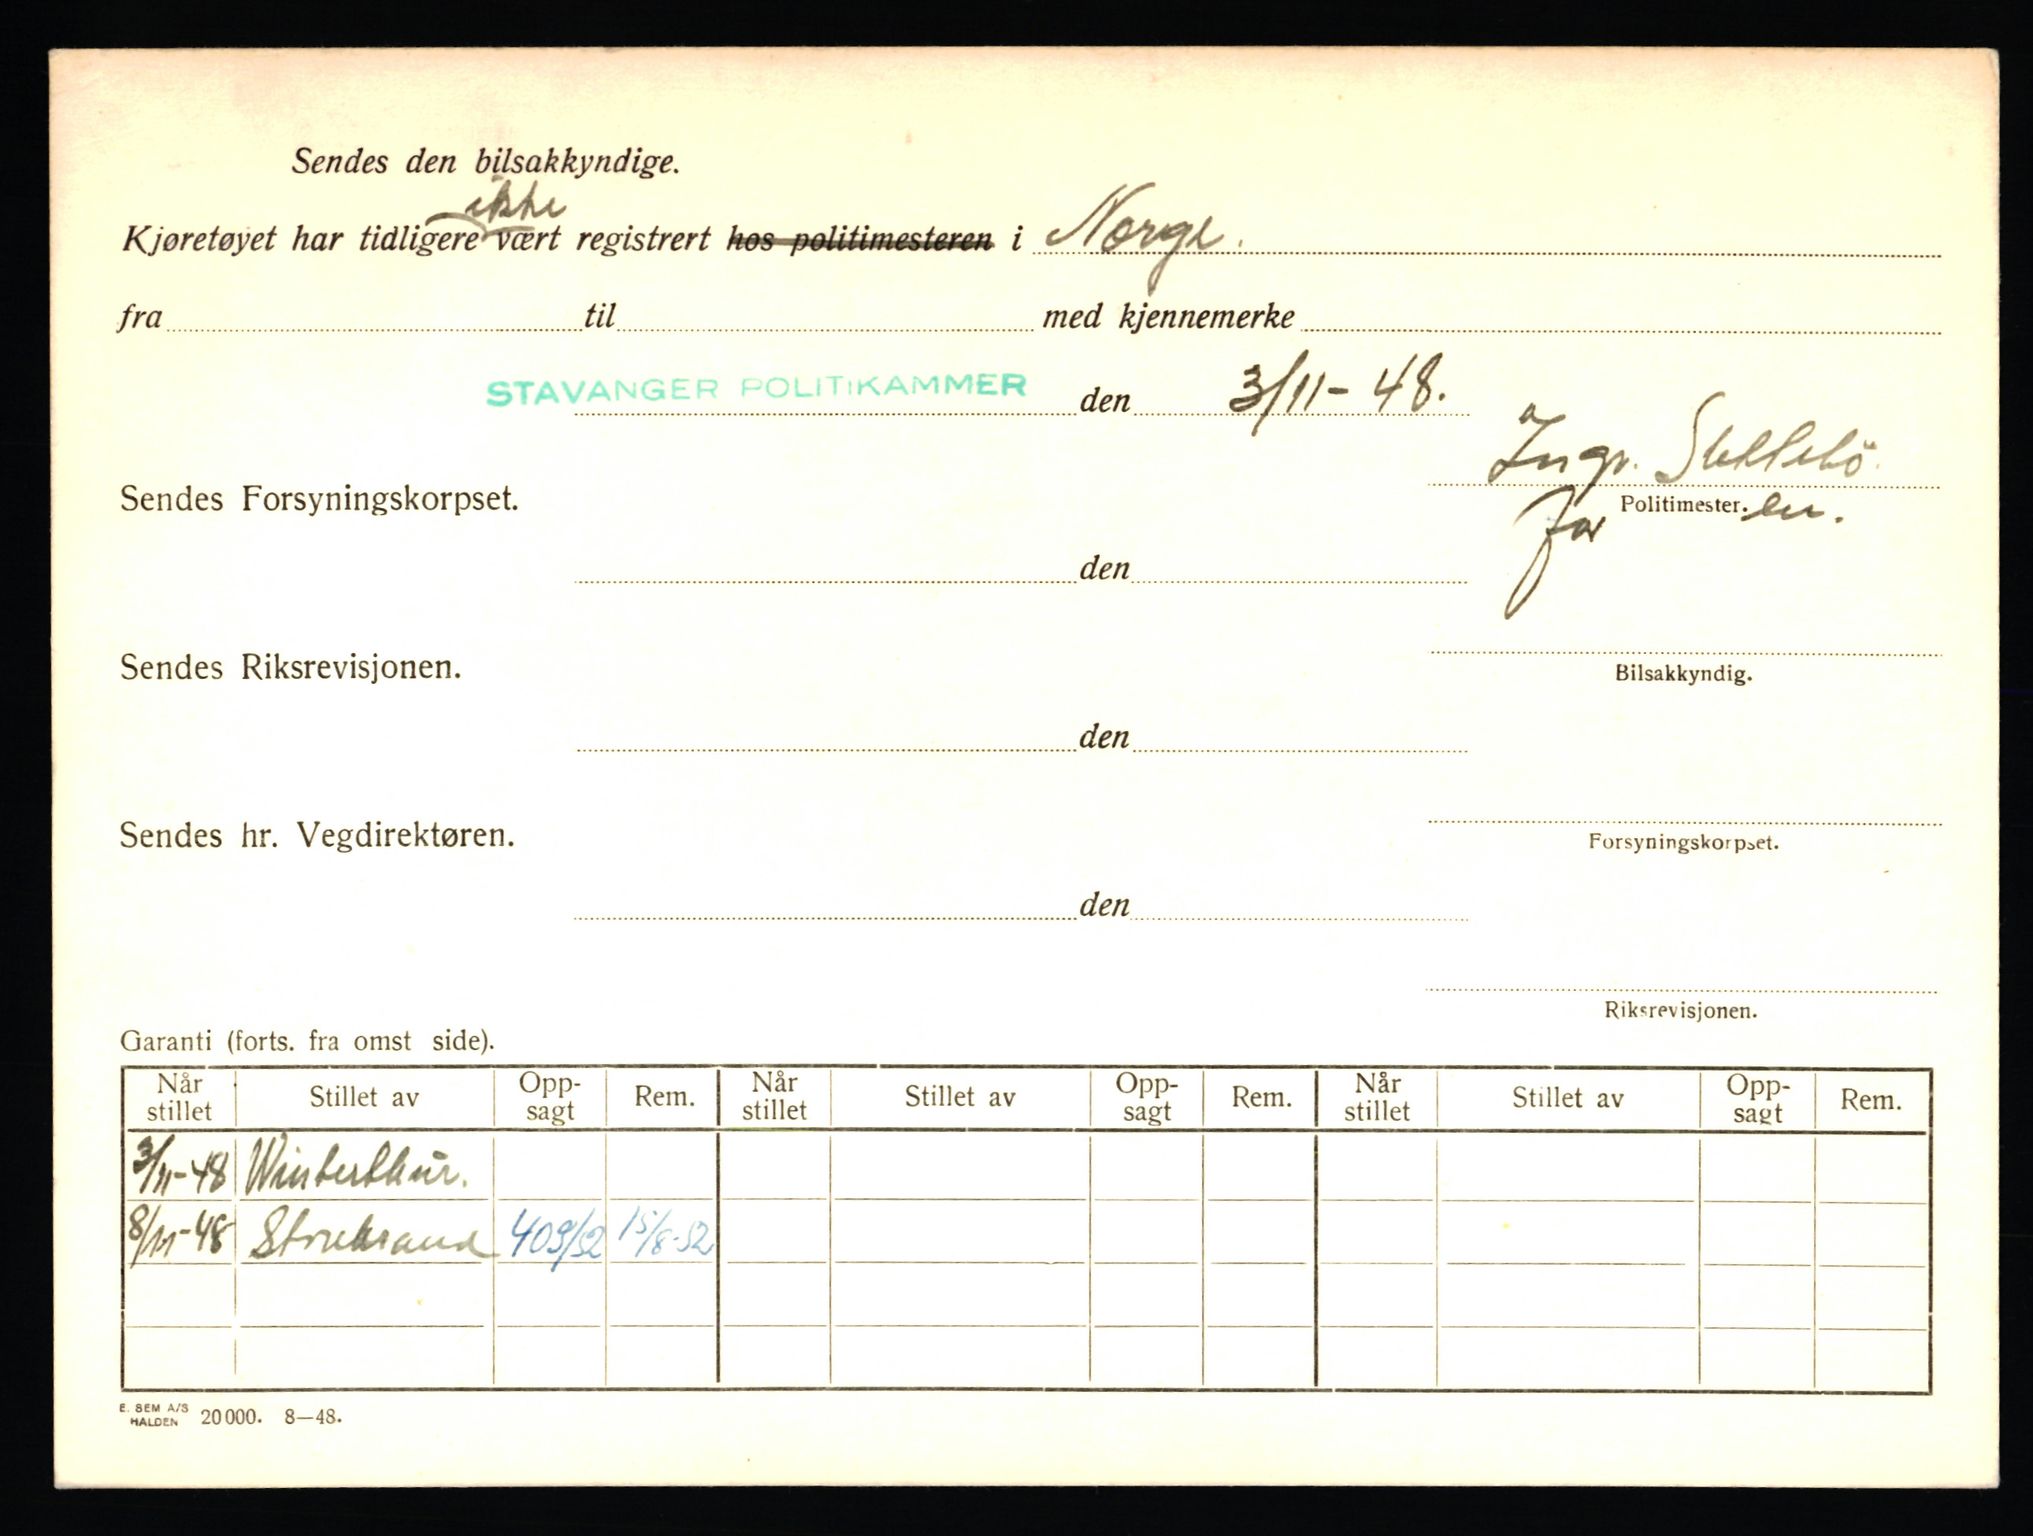 Sendes den bilsakkyndige.
Kjøretøyet har tidligere ikke vært registrert hos politimesteren i Norge.
fra til med kjennemerke
STAVANGER POLITIKAMMER den 3/11-48.
Ingv.
Sendes Forsyningskorpset.
for Politimester.en.
den
Sendes Riksrevisjonen.
Bilsakkyndig.
den
Sendes hr. Vegdirektøren.
Forsyningskorpset.
den
Riksrevisjonen.
Garanti (forts. fra omst side).
Når stillet Stillet av Opp-sagt Rem. Når stillet Stillet av Opp-sagt Rem. Når stillet Stillet av Opp-sagt Rem.
3/11-48 Winterthur.
8/11-48 Storebrand 409/52 15/8-52
E. SEM A/S
HALDEN 20000. 8—48.